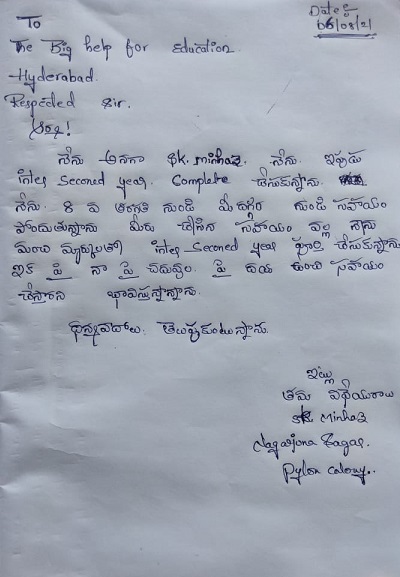 Date :-
06/08/21
To
The Big help for Education.
Hyderabad.
Respected Sir.
సార్!
నేను అనగా SK. minhaz. నేను. ఇప్పుడు
inter Seconed year. Complete చేసుకున్నాను.
నేను. 8 వ తరగతి నుండి మీ దగ్గర నుండి సహాయం
పొందుతున్నాను మీరు చేసిన సహాయం వల్ల నేను
మంచి మార్కులతో inter Seconed year పూర్తి చేసుకున్నాను
ఇక పై నా పై చదువుల పై దయ ఉంచి సహాయం
చేస్తారని భావిస్తున్నాను.
ధన్యవాదాలు. తెలుపుకుంటున్నాను.
ఇట్లు
తమ విధేయురాలు
SK Minhaz
Nagarjuna Sagar.
Pylon colony..